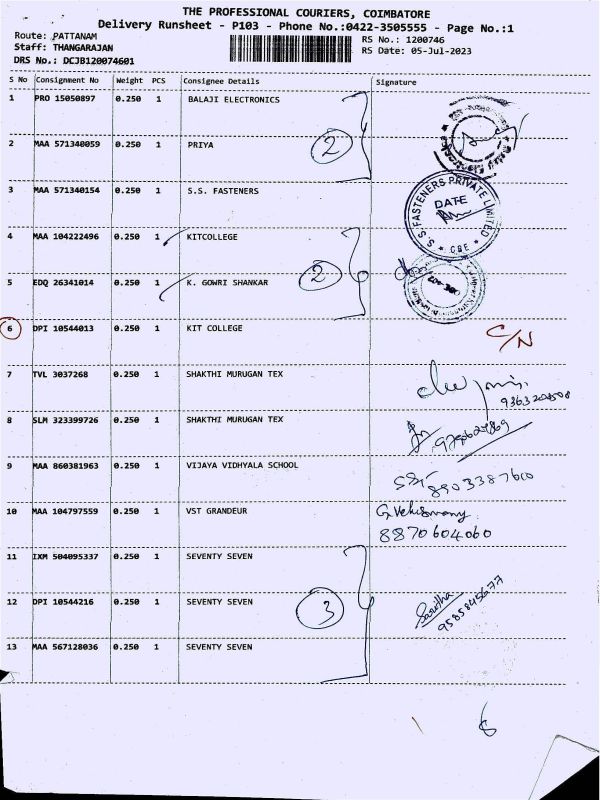 THE PROFESSIONAL COURIERS, COIMBATORE
Delivery Runsheet - P103 - Phone No.:0422-3505555 - Page No.:1
Route: PATTANAM
RS No.: 1200746
Staff: THANGARAJAN
RS Date: 05-Jul-2023
DRS No.: DCJB120074601
S No Consignment No Weight PCS Consignee Details Signature
1 PRO 15050897 0.250 1 BALAJI ELECTRONICS
2 MAA 571340059 0.250 1 PRIYA
2
3 MAA 571340154 0.250 1 S.S. FASTENERS
S.S. FASTENERS PRIVATE LIMITED
DATE
CBE
4 MAA 104222496 0.250 1 KITCOLLEGE
5 EDQ 26341014 0.250 1 K. GOWRI SHANKAR
2
6 DPI 10544013 0.250 1 KIT COLLEGE C/N
7 TVL 3037268 0.250 1 SHAKTHI MURUGAN TEX
8 SLM 323399726 0.250 1 SHAKTHI MURUGAN TEX
9 MAA 860381963 0.250 1 VIJAYA VIDHYALA SCHOOL
8903387600
10 MAA 104797559 0.250 1 VST GRANDEUR
8870604060
11 IXM 504095337 0.250 1 SEVENTY SEVEN
12 DPI 10544216 0.250 1 SEVENTY SEVEN
3
Saritha
9585845677
13 MAA 567128036 0.250 1 SEVENTY SEVEN